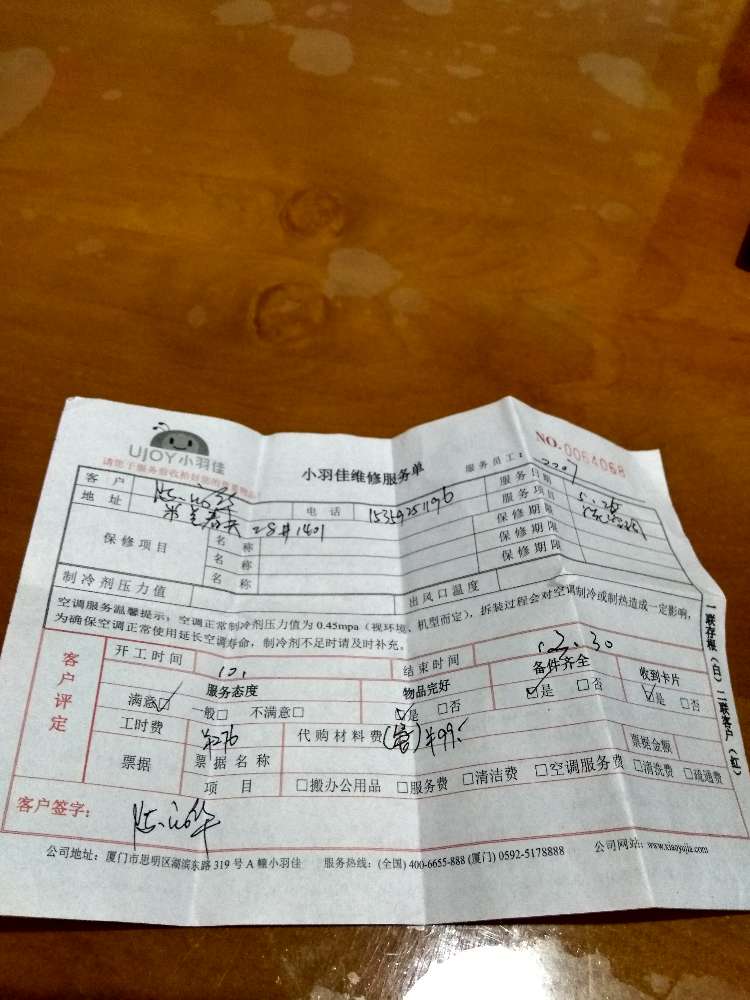 UJOY小羽佳
请您于服务验收恰时您的贵重物品
小羽佳维修服务单
服务员工: 2207
NO. 0064068
客户 电话 15359251196 服务日期 5.26
地址 28#1401 服务项目
保修项目 名称 保修期限
名称 保修期限
名称 保修期限
制冷剂压力值 出风口温度
空调服务温馨提示,空调正常制冷剂压力值为 0.45mpa(视环境、机型而定),拆装过程会对空调制冷或制热造成一定影响,
为确保空调正常使用延长空调寿命,制冷剂不足时请及时补充。
客户评定
开工时间 结束时间
服务态度 物品完好 备件齐全 收到卡片
满意☑ 一般□ 不满意□ ☑是 □否 ☑是 □否 ☑是 □否
工时费 ¥276 代购材料费 ¥99.
票据 票据名称 票据金额
项目 □搬办公用品 □服务费 □清洁费 □空调服务费 □清洗费 □疏通费
客户签字:
一联存根(白) 二联客户(红)
公司地址:厦门市思明区湖滨东路 319 号 A 幢小羽佳 服务热线:(全国) 400-6655-888 (厦门) 0592-5178888 公司网站: www.xiaoyujia.com